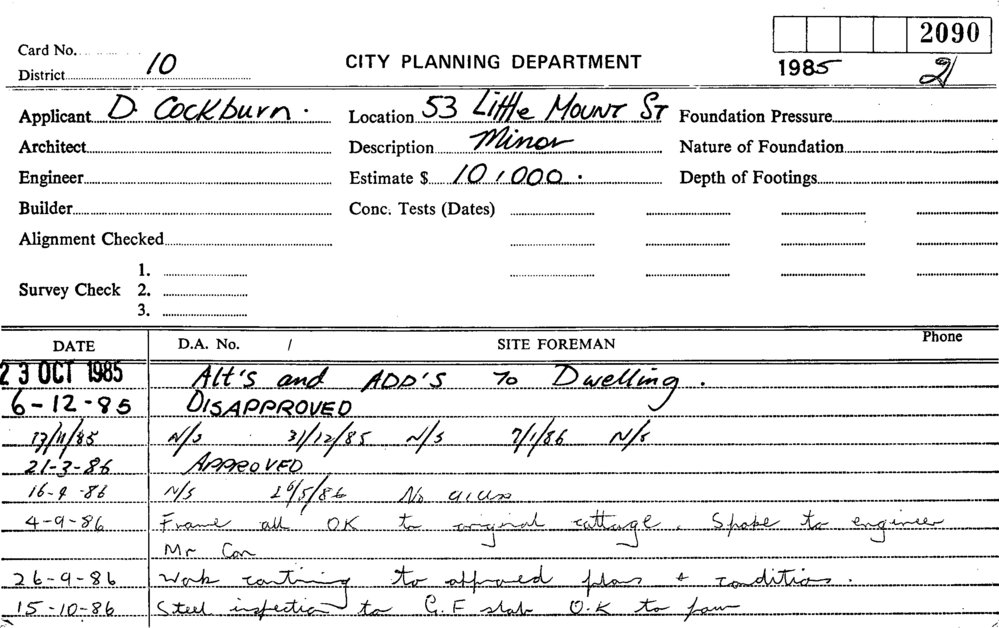 2090
Card No.
1985
2
District 10
CITY PLANNING DEPARTMENT
Applicant D. Cockburn. Location 53 Little Mount St Foundation Pressure
Architect Description Minor Nature of Foundation
Engineer Estimate $ 10,000. Depth of Footings
Builder Conc. Tests (Dates)
Alignment Checked
1.
Survey Check 2.
3.
DATE D.A. No. / SITE FOREMAN Phone
23 OCT 1985 Alt's and ADD'S To Dwelling.
6-12-85 DISAPPROVED
N/S 31/12/85 N/S 7/1/86 N/S
21-3-86 APPROVED
16-4-86 N/S 26/5/86 No
4-9-86 Frame all OK to original cottage. Spoke to engineer
Mr
26-9-86 Work to approved plans & conditions.
15-10-86 Steel inspection to G.F slab O.K to pour